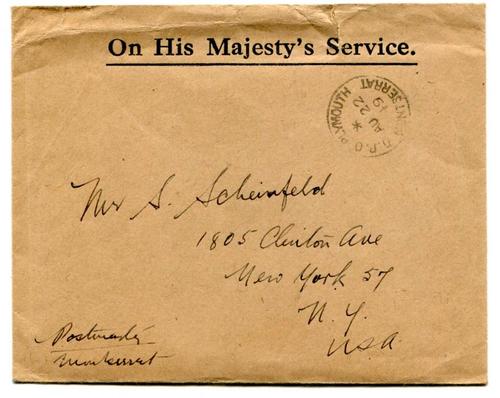 On His Majesty's Service.
G.P.O. PLYMOUTH MONTSERRAT
*
22
AU
19
Mr S. Scheinfeld
1805 Clinton Ave
New York 57
N.Y.
USA
Postmaster
Montserrat